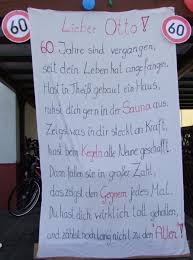 60
60
Lieber Otto!
60 Jahre sind vergangen,
seit dein Leben hat angefangen.
Hast in Theiß gebaut ein Haus,
ruhst dich gern in der Sauna aus.
Zeigst was in dir steckt an Kraft,
hast beim Kegeln alle Neune geschafft.
Dann fallen sie in großer Zahl,
das zeigst den Gegnern jedes Mal.
Du hast dich wirklich toll gehalten,
und zählst noch lang nicht zu den Alten!